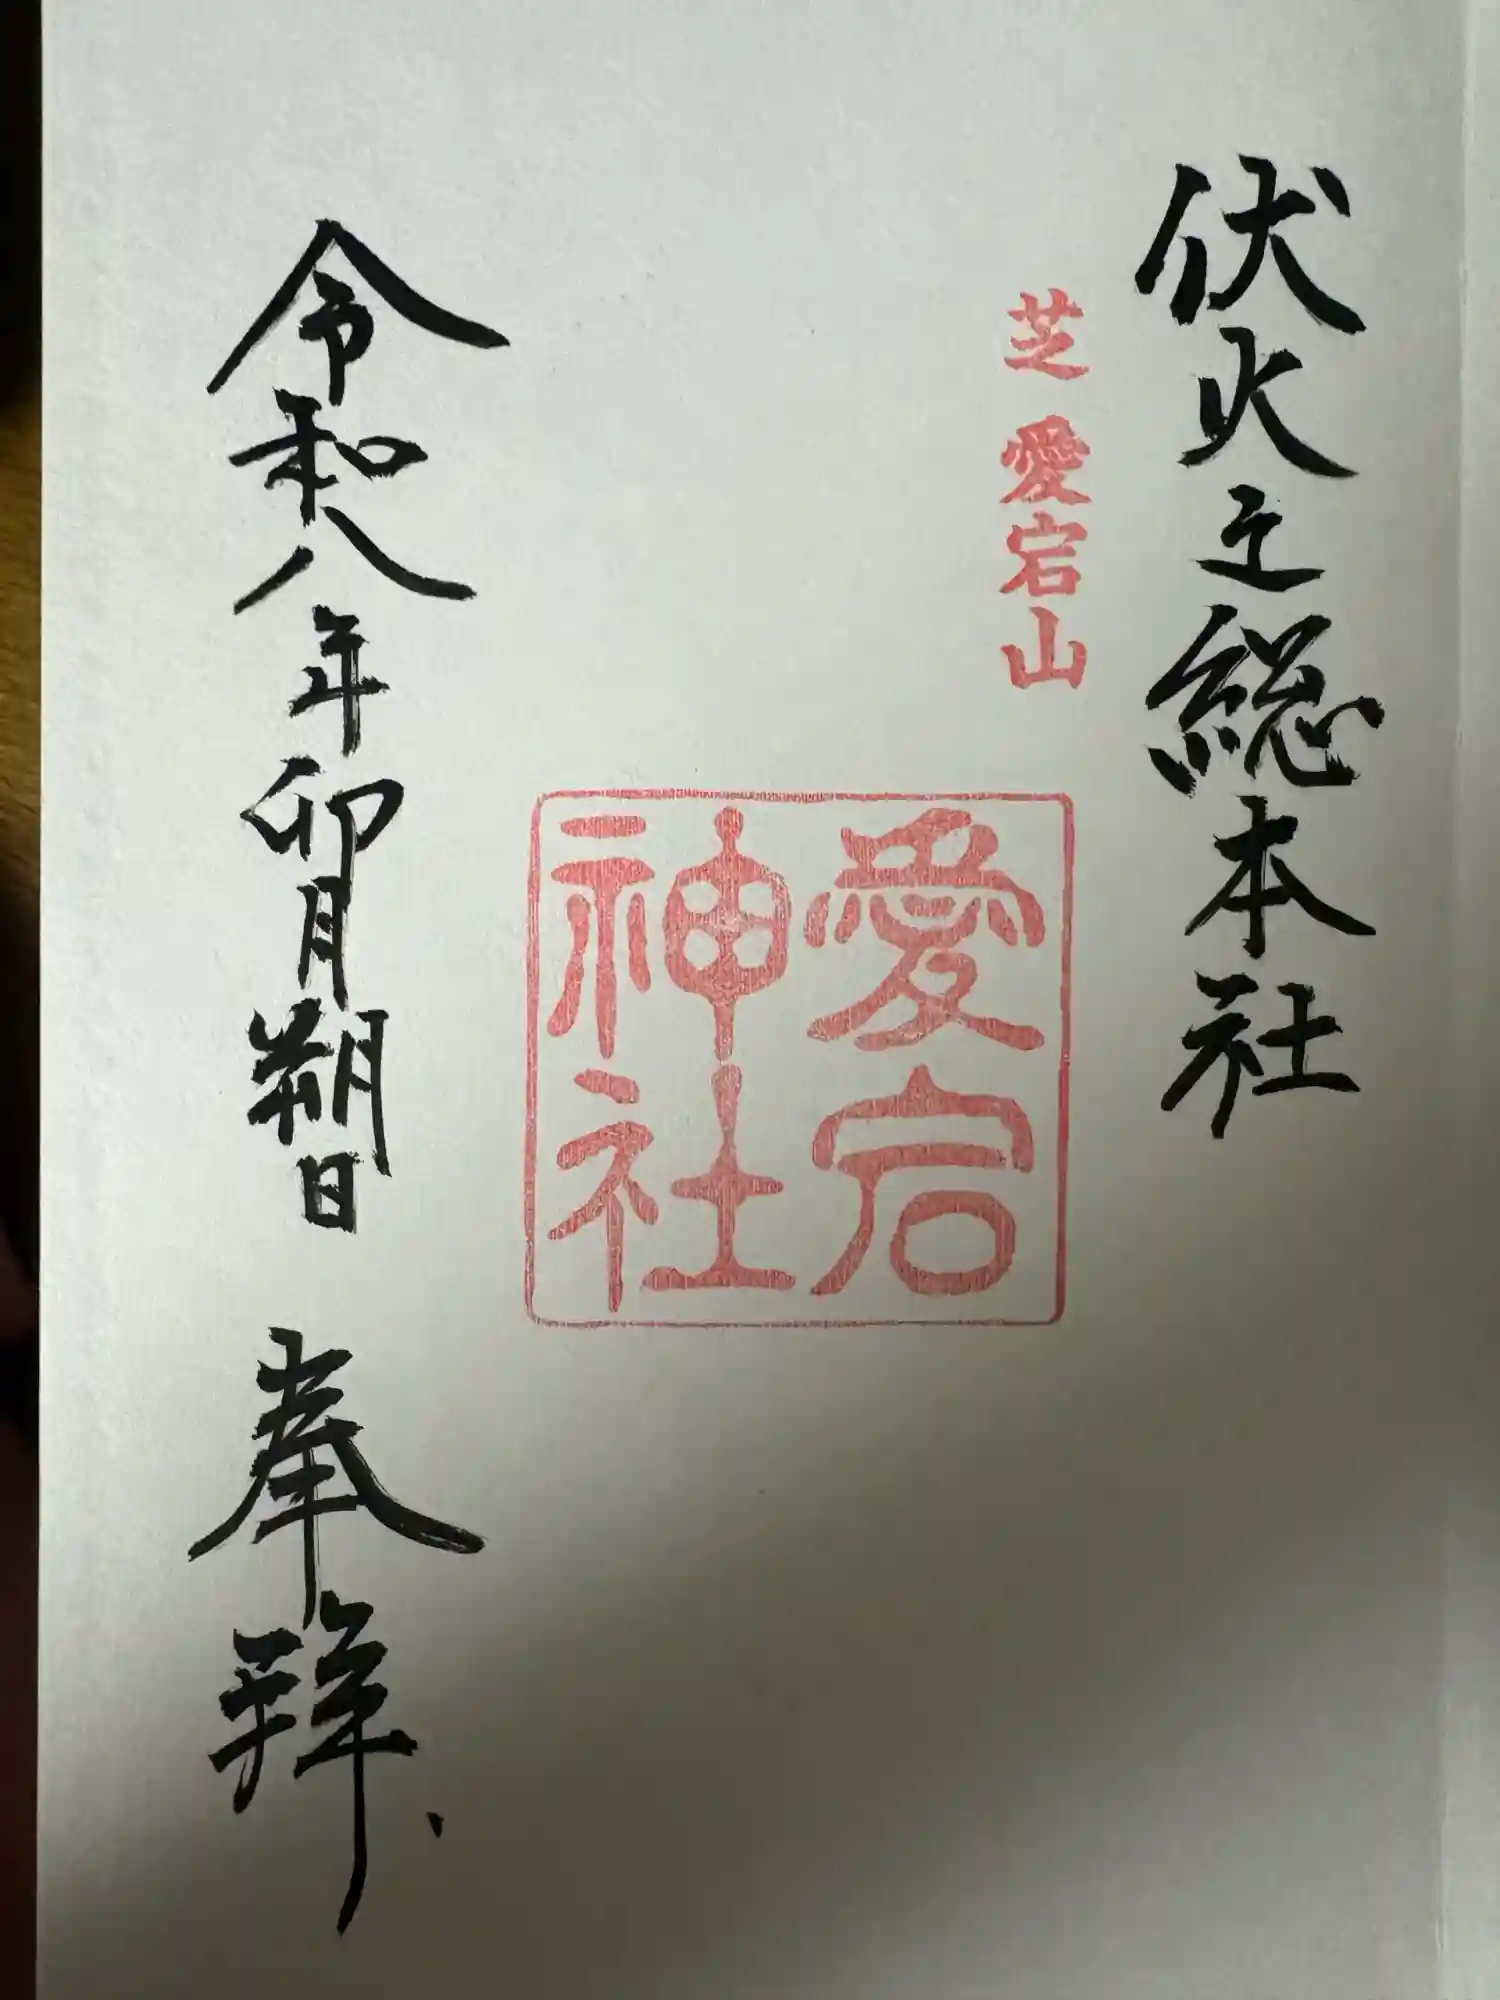 伏火之総本社
芝 愛宕山
愛宕
神社
令和八年卯月朔日 奉拜